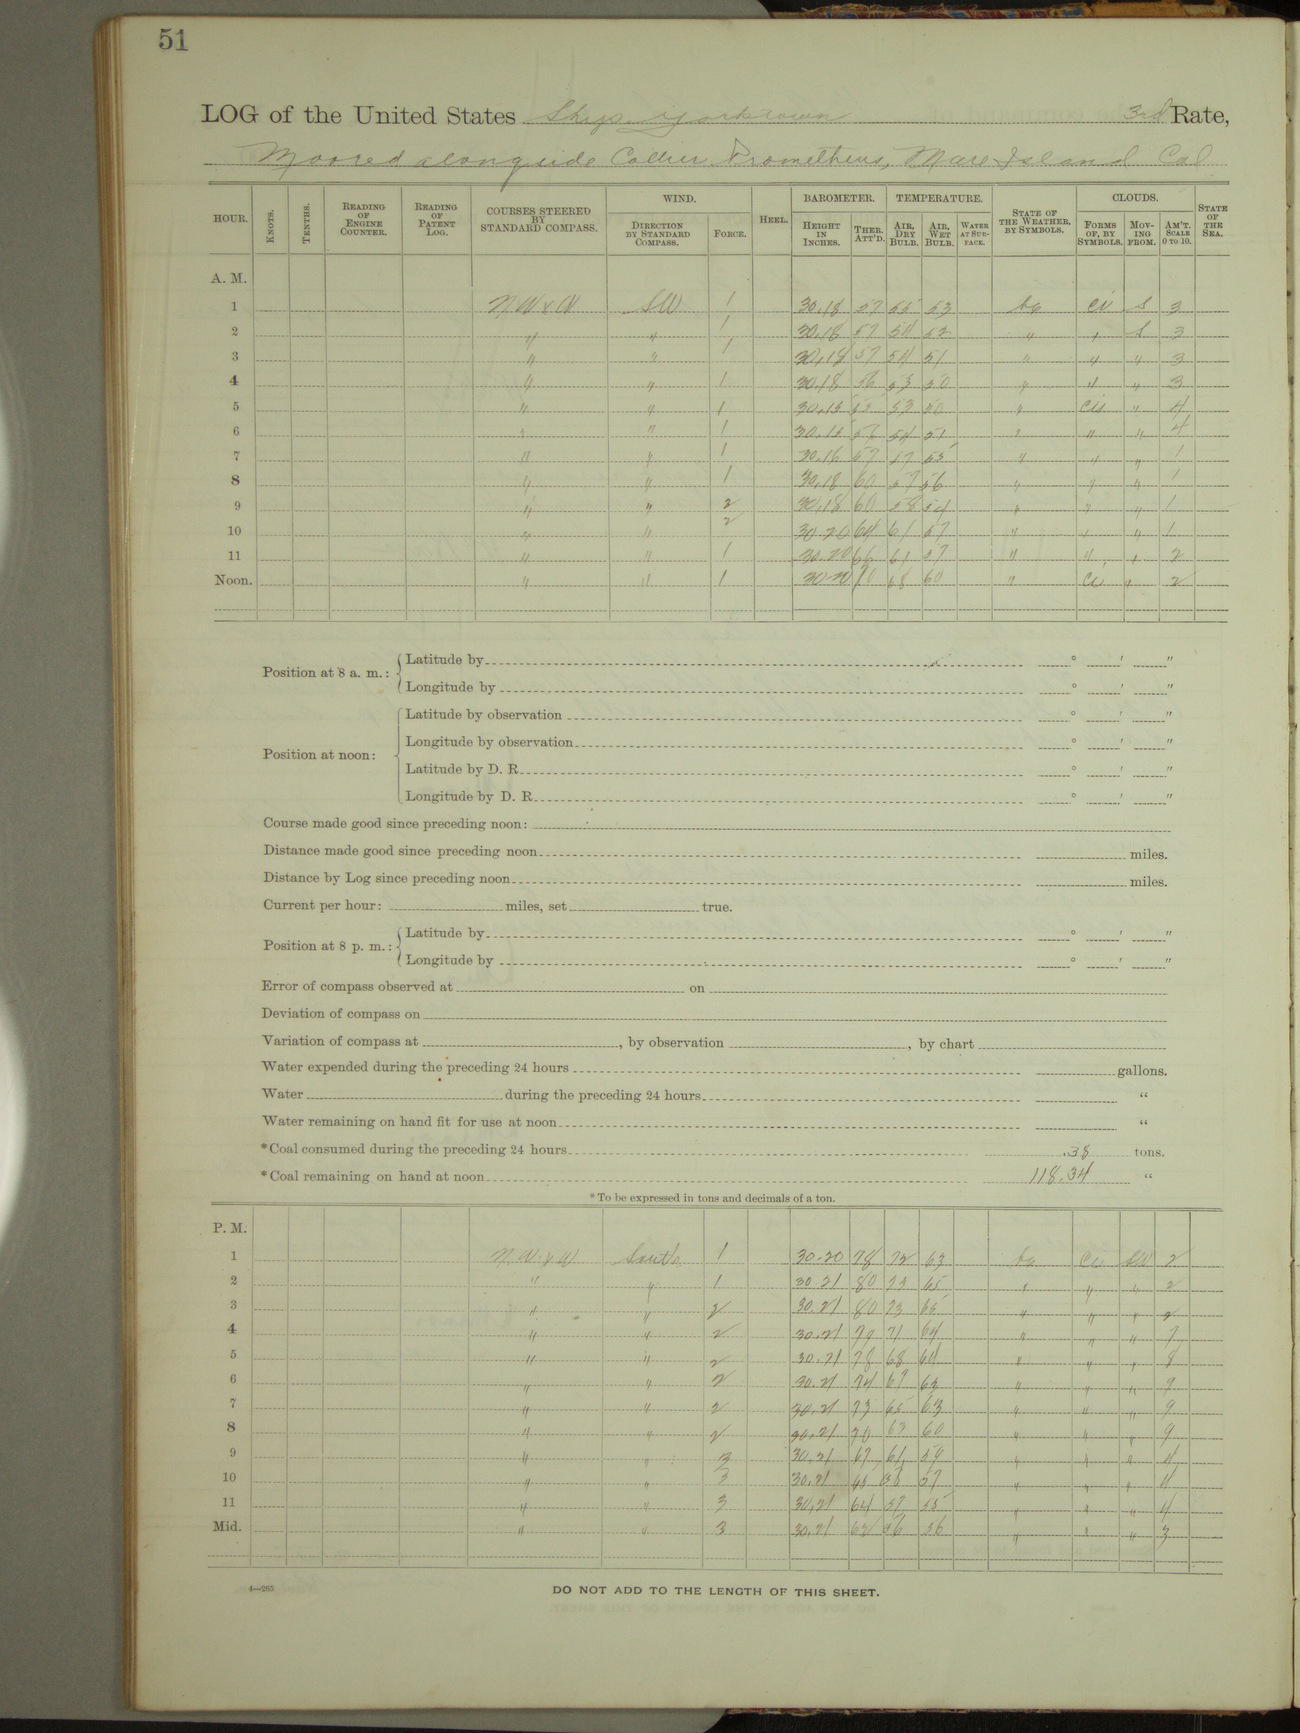 51
LOG of the United States Ship Yorktown 3rd Rate,
Moored alongside Collier Prometheus, Mare Island Cal
HOUR. KNOTS. TENTHS. READING OF ENGINE COUNTER. READING OF PATENT LOG. COURSES STEERED BY STANDARD COMPASS. WIND. DIRECTION BY STANDARD COMPASS. FORCE. HEEL. BAROMETER. HEIGHT IN INCHES. THER. ATT'D. TEMPERATURE. AIR, DRY BULB. AIR, WET BULB. WATER AT SURFACE. STATE OF THE WEATHER, BY SYMBOLS. CLOUDS. FORMS OF, BY SYMBOLS. MOVING FROM. AM'T. SCALE 0 TO 10. STATE OF THE SEA.
A. M.
1 N W x W SW 1 30.18 57 55 53 bc ci S 3
2 " " 1 30.18 57 54 52 " " S 3
3 " " 1 30.18 57 54 51 " " " 3
4 " " 1 30.18 56 53 50 " " " 3
5 " " 1 30.15 55 53 50 " " 4
6 " " 1 30.15 56 54 51 " " " 4
7 " " 1 30.16 57 57 55 " " " 1
8 " " 1 30.18 60 57 56 " " " 1
9 " " 2 30.18 60 58 54 " " " 1
10 " " 2 30.20 64 61 57 " " " 1
11 " " 1 30.20 66 61 57 " " " 2
Noon. " " 1 30.20 70 65 60 " ci " 2
Position at 8 a. m.: Latitude by ° ' "
Longitude by ° ' "
Position at noon: Latitude by observation ° ' "
Longitude by observation ° ' "
Latitude by D. R. ° ' "
Longitude by D. R. ° ' "
Course made good since preceding noon:
Distance made good since preceding noon miles.
Distance by Log since preceding noon miles.
Current per hour: miles, set true.
Position at 8 p. m.: Latitude by ° ' "
Longitude by ° ' "
Error of compass observed at on
Deviation of compass on
Variation of compass at , by observation , by chart
Water expended during the preceding 24 hours gallons.
Water during the preceding 24 hours "
Water remaining on hand fit for use at noon "
*Coal consumed during the preceding 24 hours .38 tons.
*Coal remaining on hand at noon 118.34 "
*To be expressed in tons and decimals of a ton.
P. M.
1 N. W. x W South 1 30.20 78 72 63 bc ci SW 2
2 " " 1 30.21 80 73 65 " " " 2
3 " " 2 30.21 80 73 65 " " " 2
4 " " 2 30.21 79 71 64 " " " 7
5 " " 2 30.21 78 68 64 " " " 8
6 " " 2 30.21 74 67 63 " " " 9
7 " " 2 30.21 73 65 63 " " " 9
8 " " 2 30.21 70 63 60 " " " 9
9 " " 3 30.21 67 61 59 " " " 4
10 " " 3 30.21 65 57 " " " 4
11 " " 3 30.21 64 57 55 " " " 4
Mid. " " 3 30.21 62 56 56 " " " 3
4—265
DO NOT ADD TO THE LENGTH OF THIS SHEET.